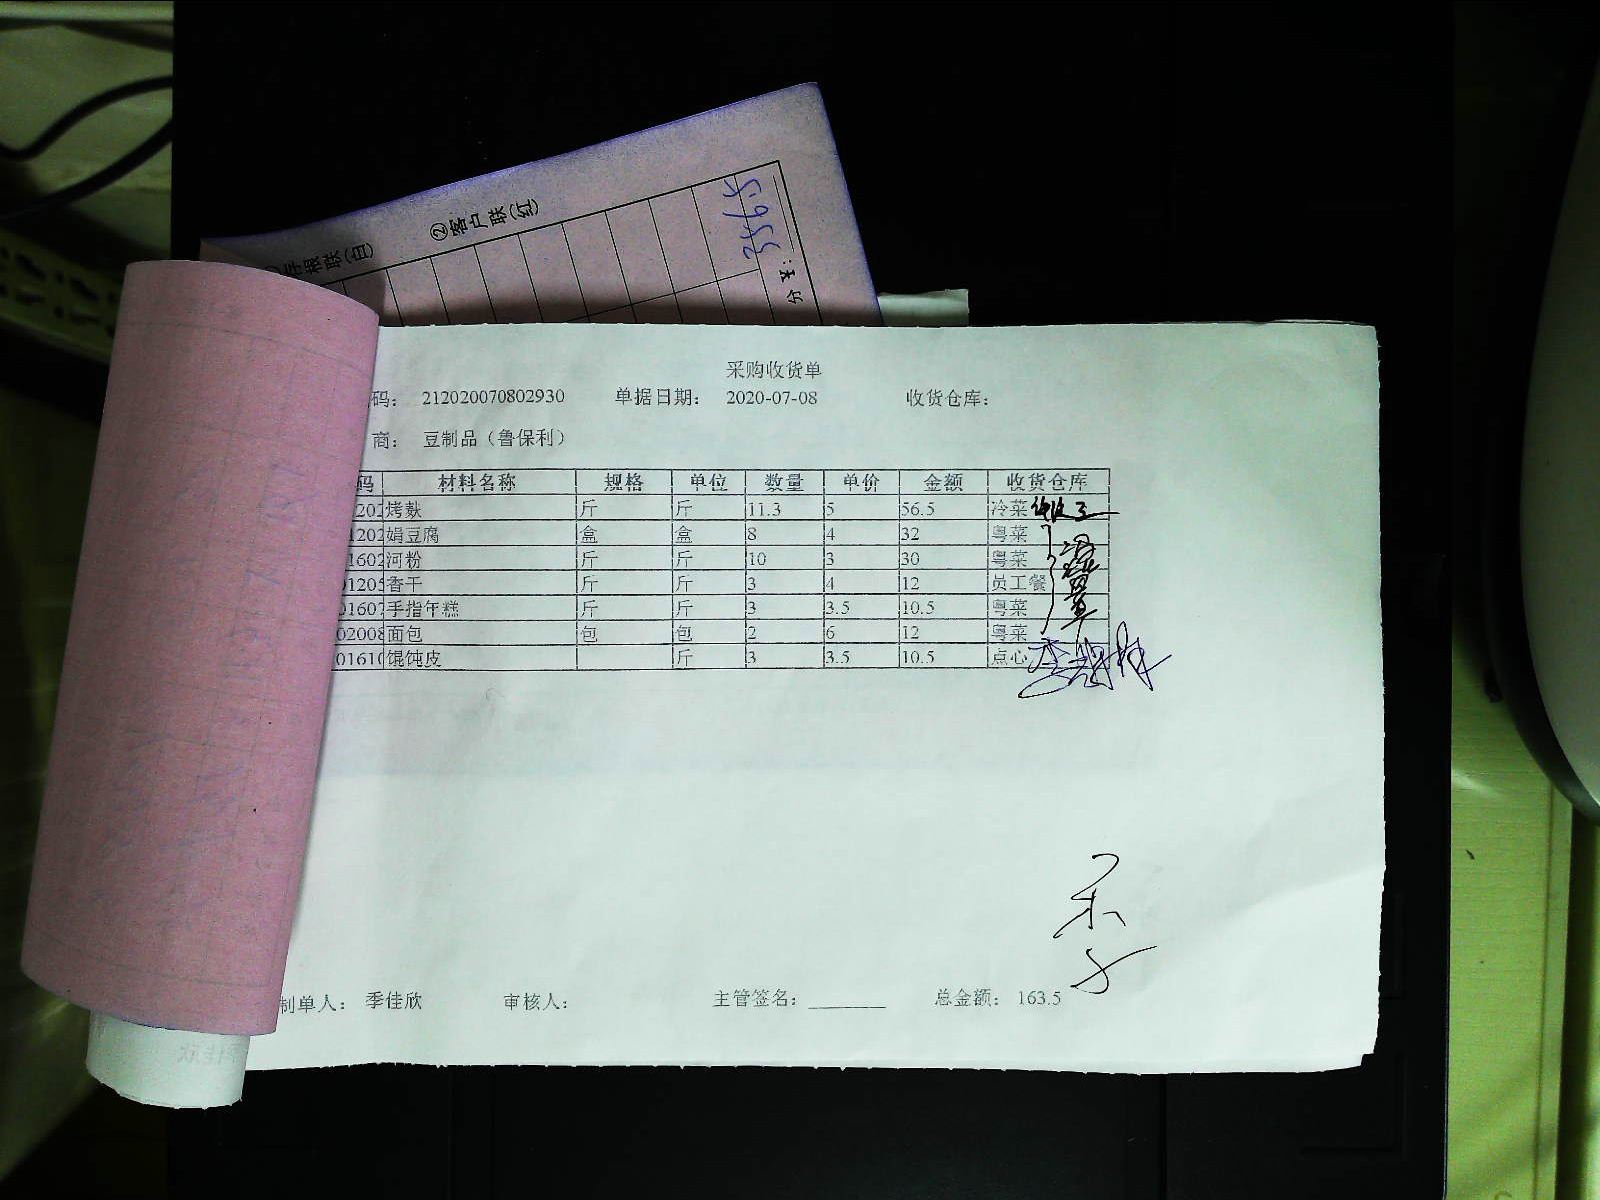 ②客户联(红)
存根联(白)
3565
分 ¥:
采购收货单
码: 212020070802930 单据日期: 2020-07-08 收货仓库:
商: 豆制品（鲁保利）
码 材料名称 规格 单位 数量 单价 金额 收货仓库
1202 烤麸 斤 斤 11.3 5 56.5 冷菜
1202 娟豆腐 盒 盒 8 4 32 粤菜
1602 河粉 斤 斤 10 3 30 粤菜
01205 香干 斤 斤 3 4 12 员工餐
01607 手指年糕 斤 斤 3 3.5 10.5 粤菜
02008 面包 包 包 2 6 12 粤菜
01610 馄饨皮 斤 3 3.5 10.5 点心
制单人: 季佳欣 审核人: 主管签名: 总金额: 163.5